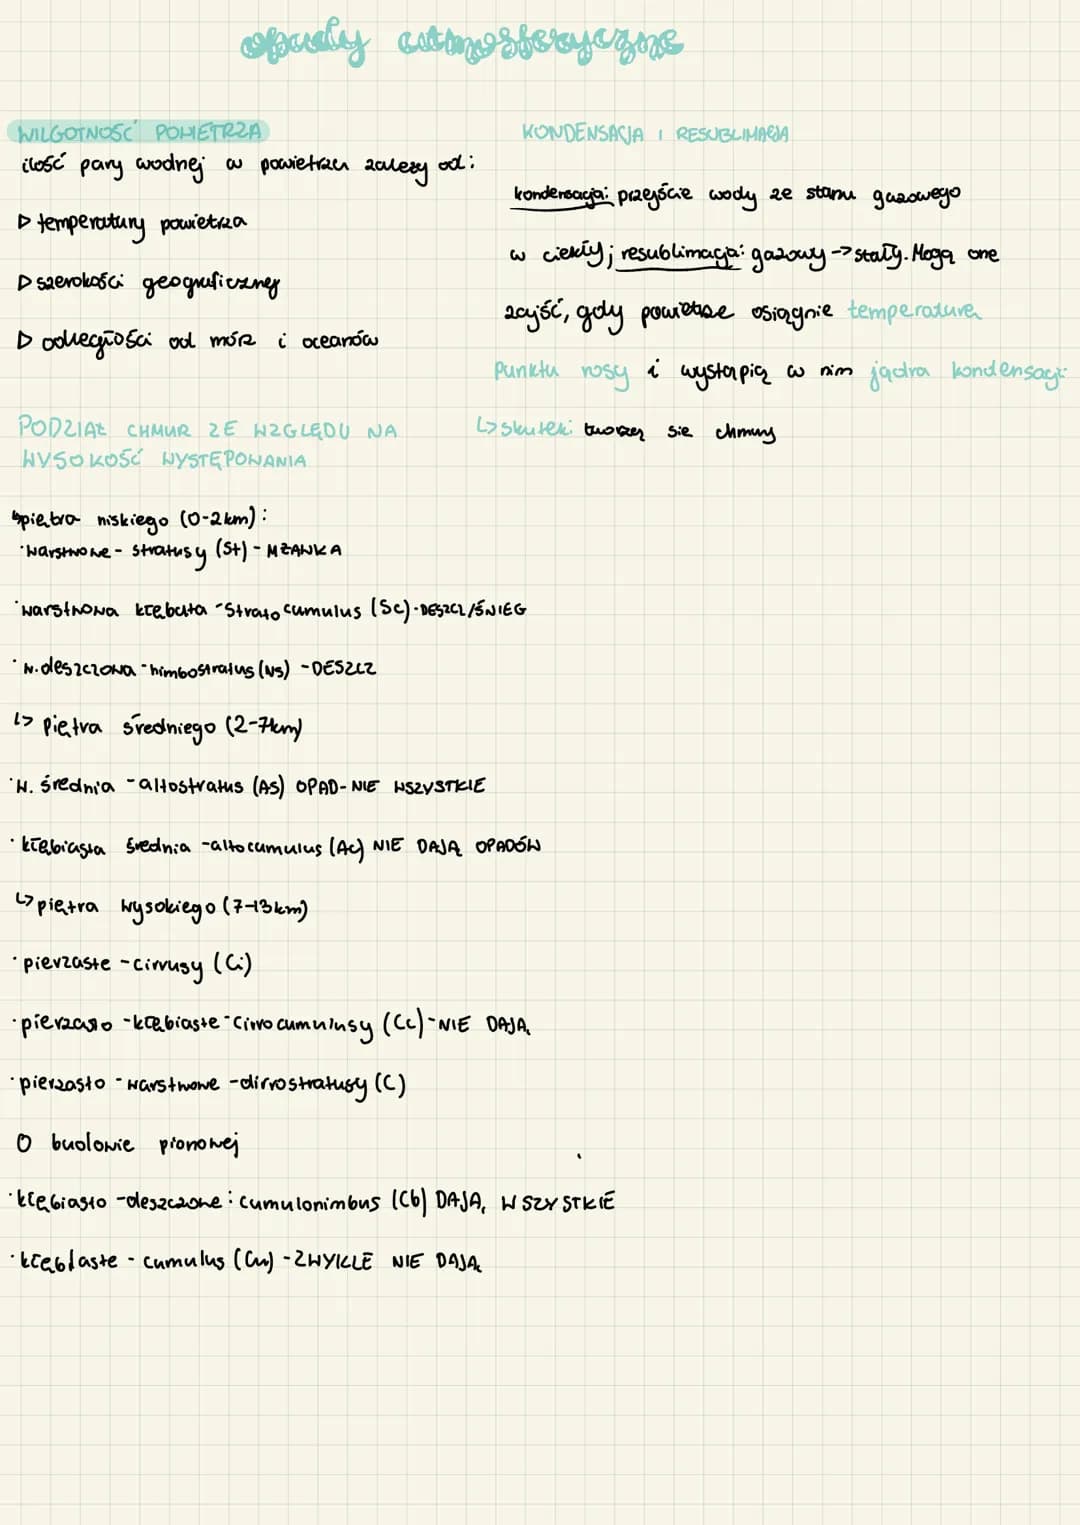 opady atmosferyczne
WILGOTNOŚĆ POWIETRZA
ilość pary wodnej w powietrzu zależy od:
▷ temperatury powietrza
▷ szerokości geograficznej
▷ odległości od mórz i oceanów
KONDENSACJA I RESUBLIMACJA
kondensacja: przejście wody ze stanu gazowego
w ciekły; resublimacja: gazowy -> stały. Mogą one
zajść, gdy powietrze osiągnie temperaturę
punktu rosy i wystąpią w nim jądra kondensacji
↳ skutek: tworzą się chmury
PODZIAŁ CHMUR ZE WZGLĘDU NA
WYSOKOŚĆ WYSTĘPOWANIA
↳ piętra niskiego (0-2km):
·warstwowe - stratusy (St) - MŻAWKA
·warstwowa kłębuta - Stratocumulus (Sc) - DESZCZ/ŚNIEG
·w. deszczowa - nimbostratus (Ns) - DESZCZ
↳ piętra średniego (2-7km)
·w. średnia - altostratus (As) OPAD - NIE WSZYSTKIE
·kłębiasta średnia - altocumulus (Ac) NIE DAJĄ OPADÓW
↳ piętra wysokiego (7-13km)
·pierzaste - cirrusy (Ci)
·pierzasto - kłębiaste - Cirrocumulusy (Cc) - NIE DAJĄ
·pierzasto - warstwowe - cirrostratusy (C)
O budowie pionowej
·kłębiasto - deszczowe: cumulonimbus (Cb) DAJĄ, WSZYSTKIE
·kłębiaste - cumulus (Cu) - ZWYKLE NIE DAJĄ